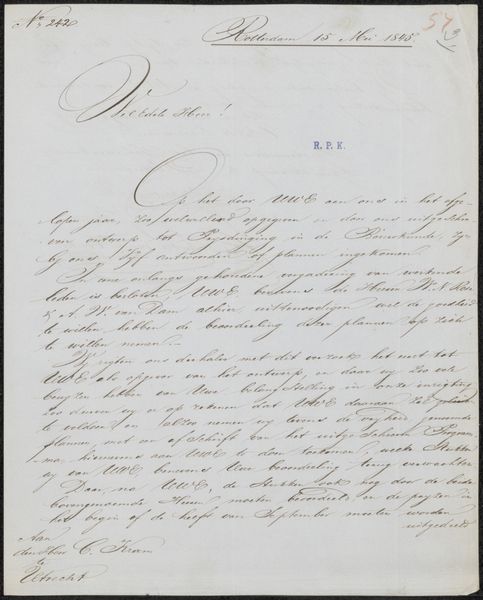 No. 242
54
Rotterdam 15 Mei 1845
WelEdele Heer!
R. P. K.
Op het door UWE aan ons in het afge-
lopen jaar, zoo welwillend opgegeven en door ons uitgeschre-
ven ontwerp tot Prysdinging in de Bouwkunde, zyn
by ons Vyf antwoorden of plannen ingekomen.
In onze onlangs gehoudene vergadering van werkende
leden is besloten, UWE, benevens de Heeren W. N.
& A. W. van Dam alhier, uittenoodigen wel de goedheid
te willen hebben de beoordeeling dezer plannen op zich
te willen nemen.
Wy rigten ons derhalve met dit verzoek het eerst tot
UWE als opgever van het ontwerp, en daar wy zoo vele
bewyzen hebben van Uwe belangstelling in onze inrigting
zoo durven wy er op rekenen dat UWE daaraan zal gelieven
te voldoen en alzoo nemen wy tevens de vryheid genoemde
plannen, met een afschrift van het uitgeschreven Program-
ma, hiernevens aan UWE te doen toekomen, welke stukken
wy van UWE benevens Uwe beoordeeling terug verwachten
Daar, na UWE, de stukken ook nog door de beide
bovengenoemde Heeren moeten beoordeeld, en de pryzen in
het begin of de helft van September moeten worden
uitgedeeld
Aan
den Heer C. Kram
te
Utrecht